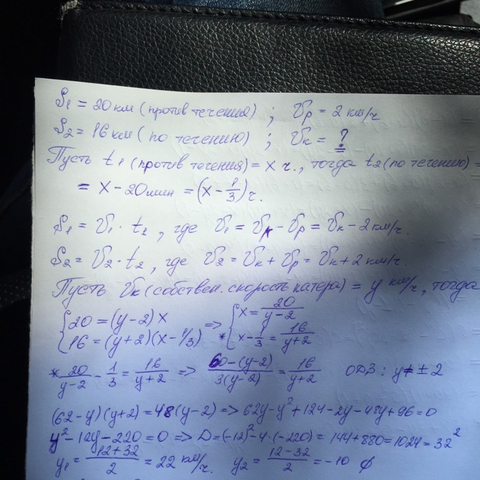 S₁ = 20 км (против течения) ; Vр = 2 км/ч
S₂ = 16 км (по течению) ; Vк = ?
Пусть t₁ (против течения) = x ч., тогда t₂ (по течению) =
= x − 20 мин = (x − 1/3) ч.
S₁ = V₁ · t₁, где V₁ = Vк − Vр = Vк − 2 км/ч.
S₂ = V₂ · t₂, где V₂ = Vк + Vр = Vк + 2 км/ч
Пусть Vк (собствен. скорость катера) = y км/ч, тогда
{20 = (y−2)x => {x = 20/(y−2)
{16 = (y+2)(x−1/3) * {x − 1/3 = 16/(y+2)
* 20/(y−2) − 1/3 = 16/(y+2) => (60−(y−2))/(3(y−2)) = 16/(y+2) ОДЗ: y ≠ ±2
(62−y)(y+2) = 48(y−2) => 62y − y² + 124 − 2y − 48y + 96 = 0
y² − 12y − 220 = 0 => D = (−12)² − 4·(−220) = 144 + 880 = 1024 = 32²
y₁ = (12+32)/2 = 22 км/ч. y₂ = (12−32)/2 = −10 ∅